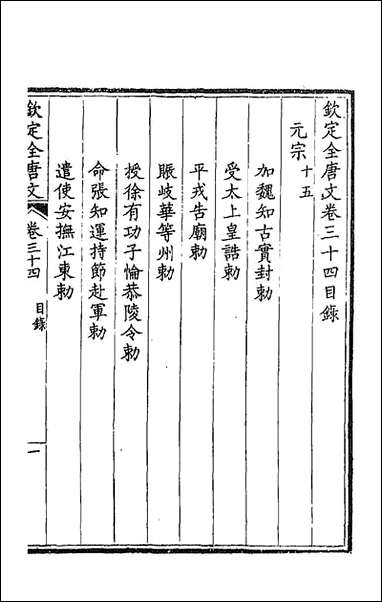 欽定全唐文卷三十四目錄
元宗十五
加魏知古實封勅
受太上皇誥勅
平戎告廟勅
賑岐華等州勅
授徐有功子惀恭陵令勅
命張知運持節赴軍勅
遣使安撫江東勅
欽定全唐文 卷三十四 目錄 一